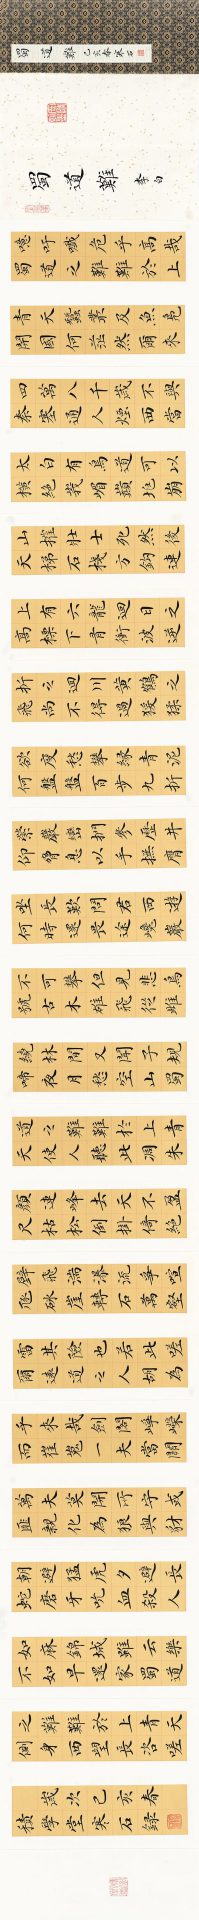 蜀道難 己亥春寒石
蜀道難 李白
噫吁嚱危乎高哉
蜀道之難難於上
青天蠶叢及魚鳧
開國何茫然爾來
四萬八千歲不與
秦塞通人煙西當
太白有鳥道可以
橫絕峨嵋巔地崩
山摧壯士死然後
天梯石棧方鉤連
上有六龍迴日之
高標下有衝波逆
折之迴川黃鶴之
飛尚不得過猨猱
欲度愁攀緣青泥
何盤盤百步九折
縈巖巒捫參歷井
仰脅息以手撫膺
坐長歎問君西遊
何時還畏途巉巖
不可攀但見悲鳥
號古木雄飛從雌
繞林間又聞子規
啼夜月愁空山蜀
道之難難於上青
天使人聽此凋朱
顏連峰去天不盈
尺枯松倒掛倚絕
壁飛湍瀑流爭喧
豗砯崖轉石萬壑
雷其險也若此嗟
爾遠道之人胡為
乎來哉劍閣崢嶸
而崔嵬一夫當關
萬夫莫開所守或
匪親化為狼與豺
朝避猛虎夕避長
蛇磨牙吮血殺人
如麻錦城雖云樂
不如早還家蜀道
之難難於上青天
側身西望長咨嗟
歲次己亥春
積學堂寒石錄